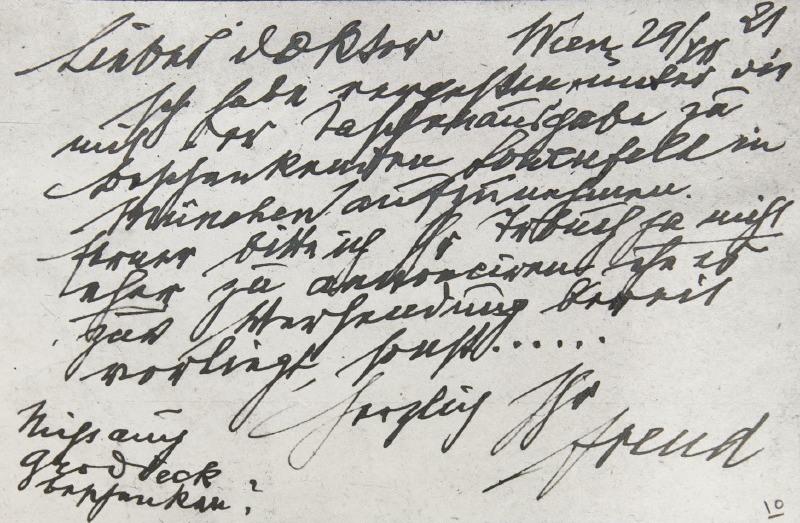 Lieber Doktor Wien, 29/XII 21
Ich habe vergessen unter die
mit der Taschenausgabe zu
beschenkenden Löwenfeld in
München aufzunehmen.
Ferner bitte ich Ihr ja nicht
eher zu annonciren ehe es
zur Versendung bereit
vorliegt, sonst......
Herzlich Ihr
Freud
Nicht auch
Groddeck
beschenken?
10